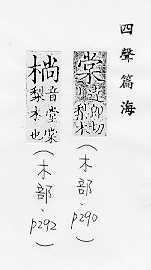 四聲篇海
棠 達郎切 梨木
(木部.p290)
樘 音堂棠 梨木也
(木部.p292)